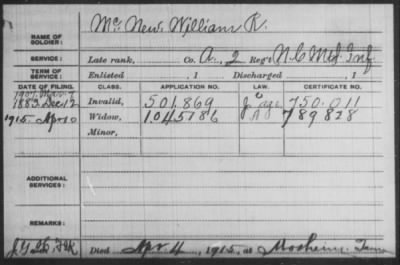 NAME OF SOLDIER: Mc New, William R.
SERVICE: Late rank, Co. A, 2 Reg't N.C. Mtd. Inf.
TERM OF SERVICE: Enlisted , 1 Discharged , 1
DATE OF FILING. CLASS. APPLICATION NO. LAW. CERTIFICATE NO.
1907 Mar
1883 Dec 12 Invalid, 501.869 age 750.011
1915 Apr 10 Widow, 1045186 789828
Minor,
ADDITIONAL SERVICES:
REMARKS:
Died Apr 4, 1915, at Mosheim Tenn